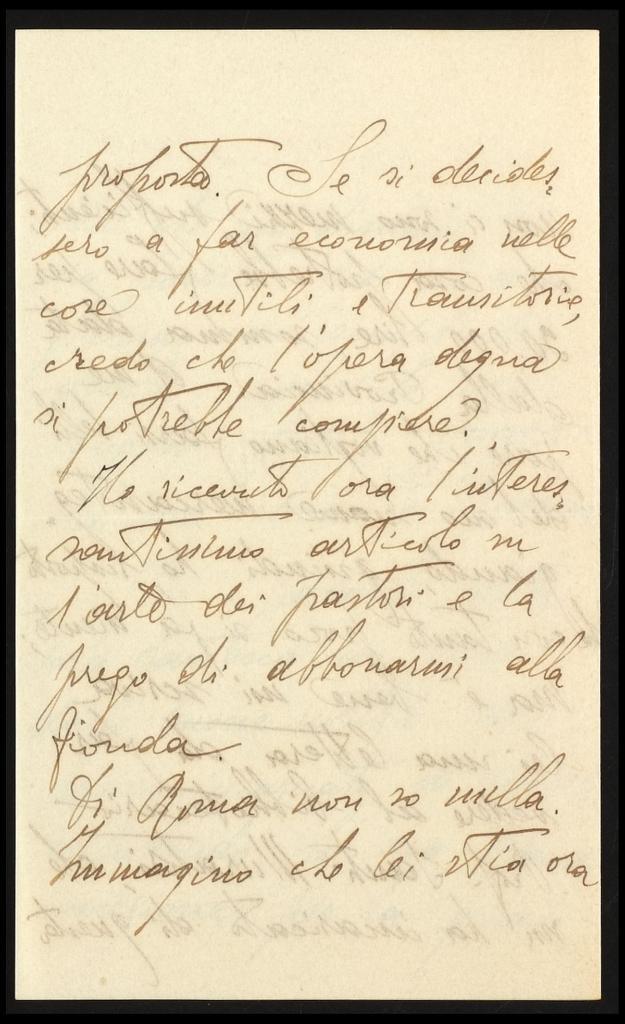 proposta. Se si decides=
sero a far economia nelle
cose inutili e transitorie,
credo che l'opera degna
si potrebbe compiere.
Ho ricevuto ora l'interes=
santissimo articolo su
l'arte dei pastori e la
prego di abbonarmi alla
fionda.
Di Roma non so nulla.
Immagino che lei stia ora